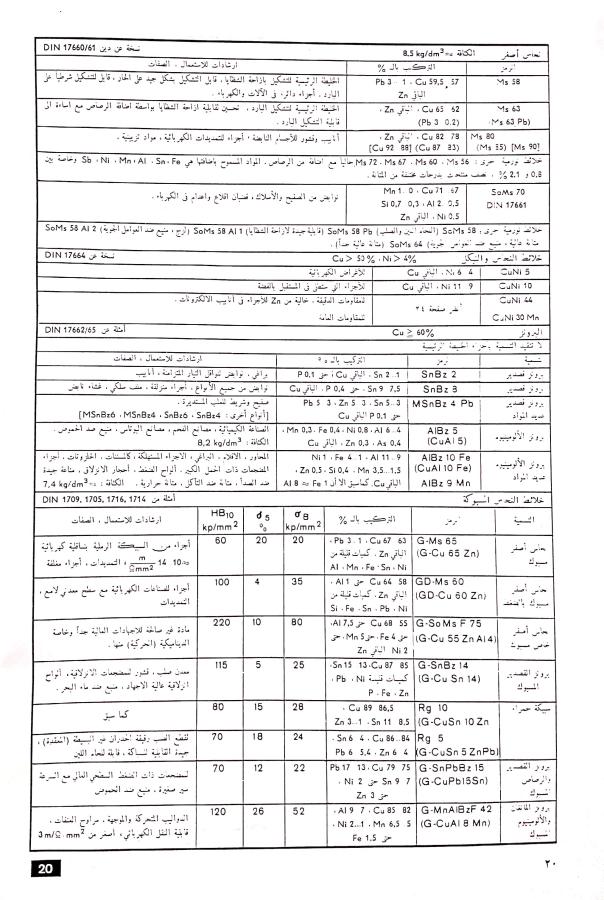 نحاس أصفر الكثافة ≈ 8,5 kg/dm³ نسخة عن دين DIN 17660/61
الرمز التركيب بالـ % ارشادات للاستعمال ، الصفات
Ms 58 Pb 3 - 1 ، Cu 59,5 57 الخليطة الرئيسية للتشكيل بازاحة الشظايا ، قابل التشكيل بشكل جيد على الحار ، قابل للتشكيل شرطياً على
الباقي Zn البارد . أجزاء دائرة في الآلات والكهرباء .
Ms 63 Cu 65 62 ، الباقي Zn ، الخليطة الرئيسية للتشكيل البارد . تحسين لقابلية ازاحة الشظايا بواسطة اضافة الرصاص مع اساءة الى
(Ms 63 Pb) (Pb 3 0,2) قابلية التشكيل البارد .
Ms 80 Cu 82 78 ، الباقي Zn ، أنابيب وقشور للأجسام النابضة ، أجزاء للتمديدات الكهربائية ، مواد تزيينية .
(Ms 85) [Ms 90] [Cu 92 88] (Cu 87 83)
خلائط نورمية أخرى : Ms 72 ، Ms 67 ، Ms 60 ، Ms 56 خالياً مع اضافة من الرصاص . المواد المسموح باضافتها هي Sb ، Ni ، Mn ، Al ، Sn ، Fe وخاصة بين
0,8 و 2,1 % ، نصف منتجات بدرجات مختلفة من المتانة .
SoMs 70 Mn 1..0 ، Cu 71 67 نوابض من الصفيح والأسلاك ، قضبان اقلاع واخدام في الكهرباء .
DIN 17661 Si 0,7 0,3 ، Al 2.. 0,5
Ni 0,5 ، الباقي Zn
خلائط نورمية أخرى : SoMs 58 (النحاس اللين والصلب) SoMs 58 Pb (قابلية جيدة لازاحة الشظايا) SoMs 58 Al 1 (لزج ، منيع ضد العوامل الجوية) SoMs 58 Al 2
متانة عالية ، منيع ضد العوامل جوية) SoMs 64 (متانة عالية جداً) .
خلائط النحاس والنيكل Cu > 50 % ، Ni > 4% نسخة عن DIN 17664
CuNi 5 Ni 6 4 ، الباقي Cu للأغراض الكهربائية
CuNi 10 Ni 11 9 ، الباقي Cu للأجزاء التي ستطلى في المستقبل بالفضة
CuNi 44 أنظر صفحة ٢٤ للمقاومات الدقيقة . خالية من Zn للأجزاء في أنابيب الالكترونات .
CuNi 30 Mn للمقاومات العامة
البرونز Cu ≥ 60% أمثلة عن DIN 17662/65
لا تتقيد التسمية بأجزاء الخليطة الرئيسية
تسمية رمز التركيب بالـ % ارشادات للاستعمال ، الصفات
برونز قصدير SnBz 2 Sn 2..1 ، الباقي Cu ، حتى P 0,1 براغي ، نوابض لنواقل التيار المتزامنة ، أنابيب
برونز قصدير SnBz 8 Sn 9 7,5 ، حتى P 0,4 ، الباقي Cu نوابض من جميع الأنواع ، أجزاء منزلقة ، ملف سلكي ، غشاء نابض
برونز قصدير MSnBz 4 Pb Pb 5 3 ، Zn 5 3 ، Sn 5..3 صفيح وشريط للعلب المستديرة .
عديد المواد حتى P 0,1 الباقي Cu [أنواع أخرى : MSnBz6 ، MSnBz4 ، SnBz6 ، SnBz4]
برونز الألومينيوم AlBz 5 Al 6 4 ، Ni 0,8 ، Fe 0,4 ، Mn 0,3 ، الصناعة الكيميائية ، مصانع الفحم ، مصانع البوتاس ، منيع ضد الحموض .
(CuAl 5) As 0,4 ، Zn 0,3 ، الباقي Cu الكثافة : 8,2 kg/dm³
برونز الألومينيوم AlBz 10 Fe Al 11 9 ، Fe 4..1 ، Ni 1 المحاور ، الاقلام ، البراغي ، الاجزاء المستهلكة ، كالمسننات ، الحلزونات ، أجزاء
عديد المواد (CuAl 10 Fe) Mn 3,5..1,5 ، Si 0,4 ، Zn 0,5 ، المضجعات ذات الحمل الكبير . ألواح الضغط ، أحجار الانزلاق ، مناعة جيدة
AlBz 9 Mn الباقي Cu. كما سبق الا أن Al 8 ≈ Fe 1 ضد الصدأ ، متانة ضد التآكل ، متانة حرارية . الكثافة : ≈ 7,4 kg/dm³
خلائط النحاس المسبوكة أمثلة من DIN 1709, 1705, 1716, 1714
التسمية الرمز التركيب بالـ % σB kp/mm² δ5 % HB10 kp/mm² ارشادات للاستعمال ، الصفات
نحاس أصفر G-Ms 65 Cu 67 63 ، Pb 3..1 ، 20 20 60 أجزاء من السبيكة الرملية بناقلية كهربائية
مسبوك (G-Cu 65 Zn) الباقي Zn ، كميات قليلة من ≈10 14 m/Ωmm² ، التمديدات ، أجزاء مغلقة
Al ، Mn ، Fe ، Sn ، Ni
نحاس أصفر GD-Ms 60 Cu 64 58 ، حتى Al 1 ، 35 4 100 أجزاء للصناعات الكهربائية مع سطح معدني لامع ،
مسبوك بالضغط (GD-Cu 60 Zn) الباقي Zn ، كميات قليلة من التمديدات
Si ، Fe ، Sn ، Pb ، Ni
نحاس أصفر G-SoMs F 75 Cu 68 55 ، حتى Al 7,5 ، 80 10 220 مادة غير صالحة للاجهادات العالية جداً وخاصة
خاص مسبوك (G-Cu 55 Zn Al 4) حتى Fe 4 ، حتى Mn 5 ، حتى الديناميكية (الحركية) منها .
Ni 2 الباقي Zn
برونز القصدير G-SnBz 14 Cu 87 85 ، Sn 15 13 ، 25 5 115 معدن صلب ، قشور لمضجعات الانزلاقية ، ألواح
المسبوك (G-Cu Sn 14) كميات قليلة Ni ، Pb ، انزلاقية عالية الاجهاد ، منيع ضد ماء البحر .
P ، Fe ، Zn
سبيكة حمراء Rg 10 Cu 89 86,5 ، 28 15 80 كما سبق
(G-CuSn 10 Zn Sn 11 8,5 ، Zn 3...1
Rg 5 Cu 86...84 ، Sn 6 4 ، 24 18 70 لقطع الصب رقيقة الجدران غير البسيطة (المعقدة) ،
(G-CuSn 5 ZnPb) Zn 6 4 ، Pb 6 5,4 جيدة القابلية للسباكة ، قابلة للحام اللين
برونز القصدير G-SnPbBz 15 Cu 79 75 ، Pb 17 13 22 12 70 لمضجعات ذات الضغط السطحي العالي مع السرعة
والرصاص (G-CuPb15Sn) Sn 9 7 حتى Ni 2 ، سير صغيرة ، منيع ضد الحموض
المسبوك حتى Zn 3
برونز المانغان G-MnAlBzF 42 Cu 85 82 ، Al 9 7 ، 52 26 120 الدواليب المتحركة والموجهة . مراوح العنفات .
والألومينيوم (G-CuAl 8 Mn) Mn 6,5 5 ، Ni 2...1 ، قابلية النقل الكهربائي ، أصغر من 3 m/Ω·mm²
المسبوك حتى Fe 1,5
٢٠
20